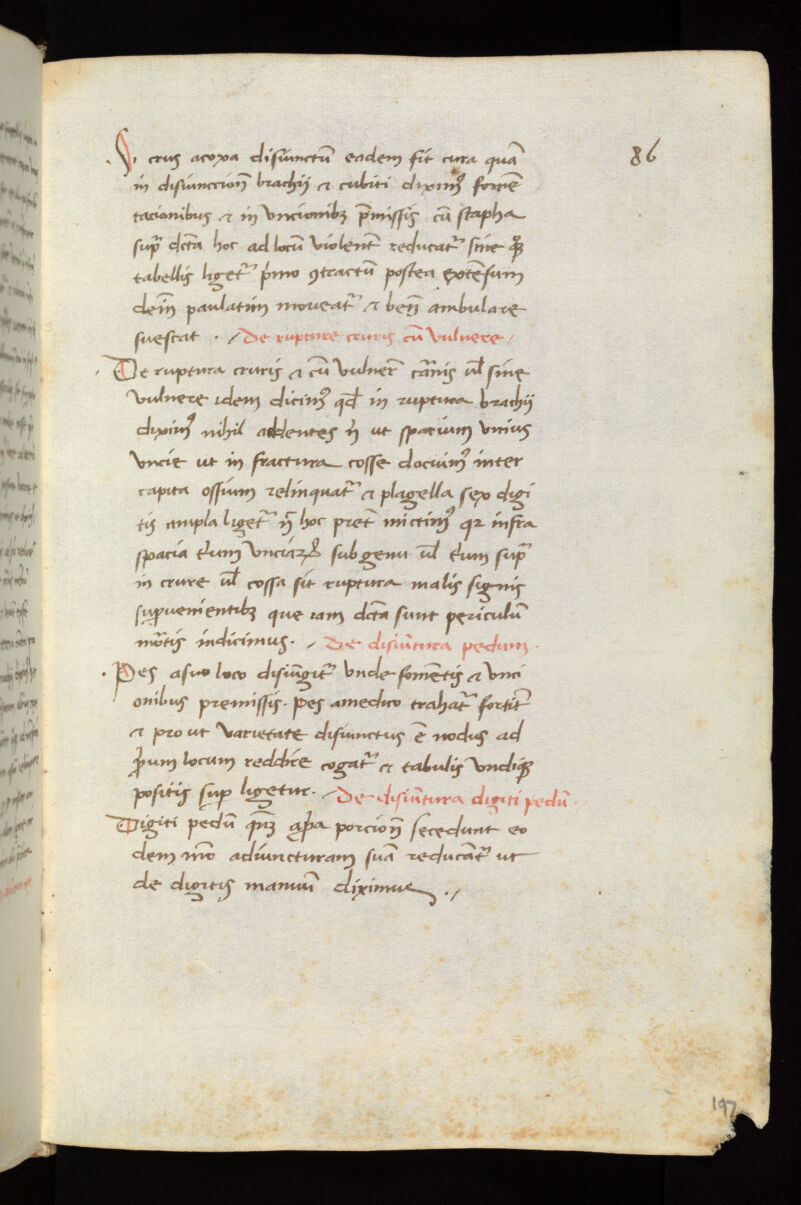 86
Si crus a coxa disiunctũ eadem fit cura quã
in disiunccionẽ brachij & cubiti diximꝰ fomẽ
tacionibus & in vncionibꝫ p̃missis cũ stapha
sup̃ dc̃ta hoc ad locũ violent̃ reducatᷣ sine
tabellis ligetᷣ p̃mo ꝯtractũ postea extẽsum
dein̄ paulatim moueatᷣ & ben̄ ambulare
suescat . De rupture cruris cũ vulnere
De ruptura cruris & cũ vulner̃ carnis ul̃ sine
vulnere idem dicimꝰ qd̃ in ruptura brachij
diximꝰ nihil addentes n̄ ut spacium vnius
vncie ut in fractura cosse docuimꝰ inter
capita ossium relinquatᷣ & plagella sex digi
tis ampla ligetᷣ n̄ hoc pret̃ mictimꝰ qr infra
spacia t̃ium vnciarꝝ sub genu ul̃ t̃ium sup̃
in crure ul̃ cossa sit ruptura malis signis
sup̃uenientibꝫ que iam dc̃ta sunt periculũ
mor̃tis indicimus . De disiũtura pedum .
Pes a suo loco disiũgitᷣ vnde fomẽtis & vnci
onibus premissis . pes a medico trahatᷣ fortit̃
& pro ut varietate disiunctus ẽ nodus ad
p̃rium locum reddire cogatᷣ & tabulis vndiqꝫ
positis sup̃ ligetur . De disiũtura digiti pedũ .
Digiti pedũ a p̃p̃a porcion̄ secedunt eo
dem mo ad iuncturam suã reducãtᷣ ut
de digitis manuũ diximus .
197